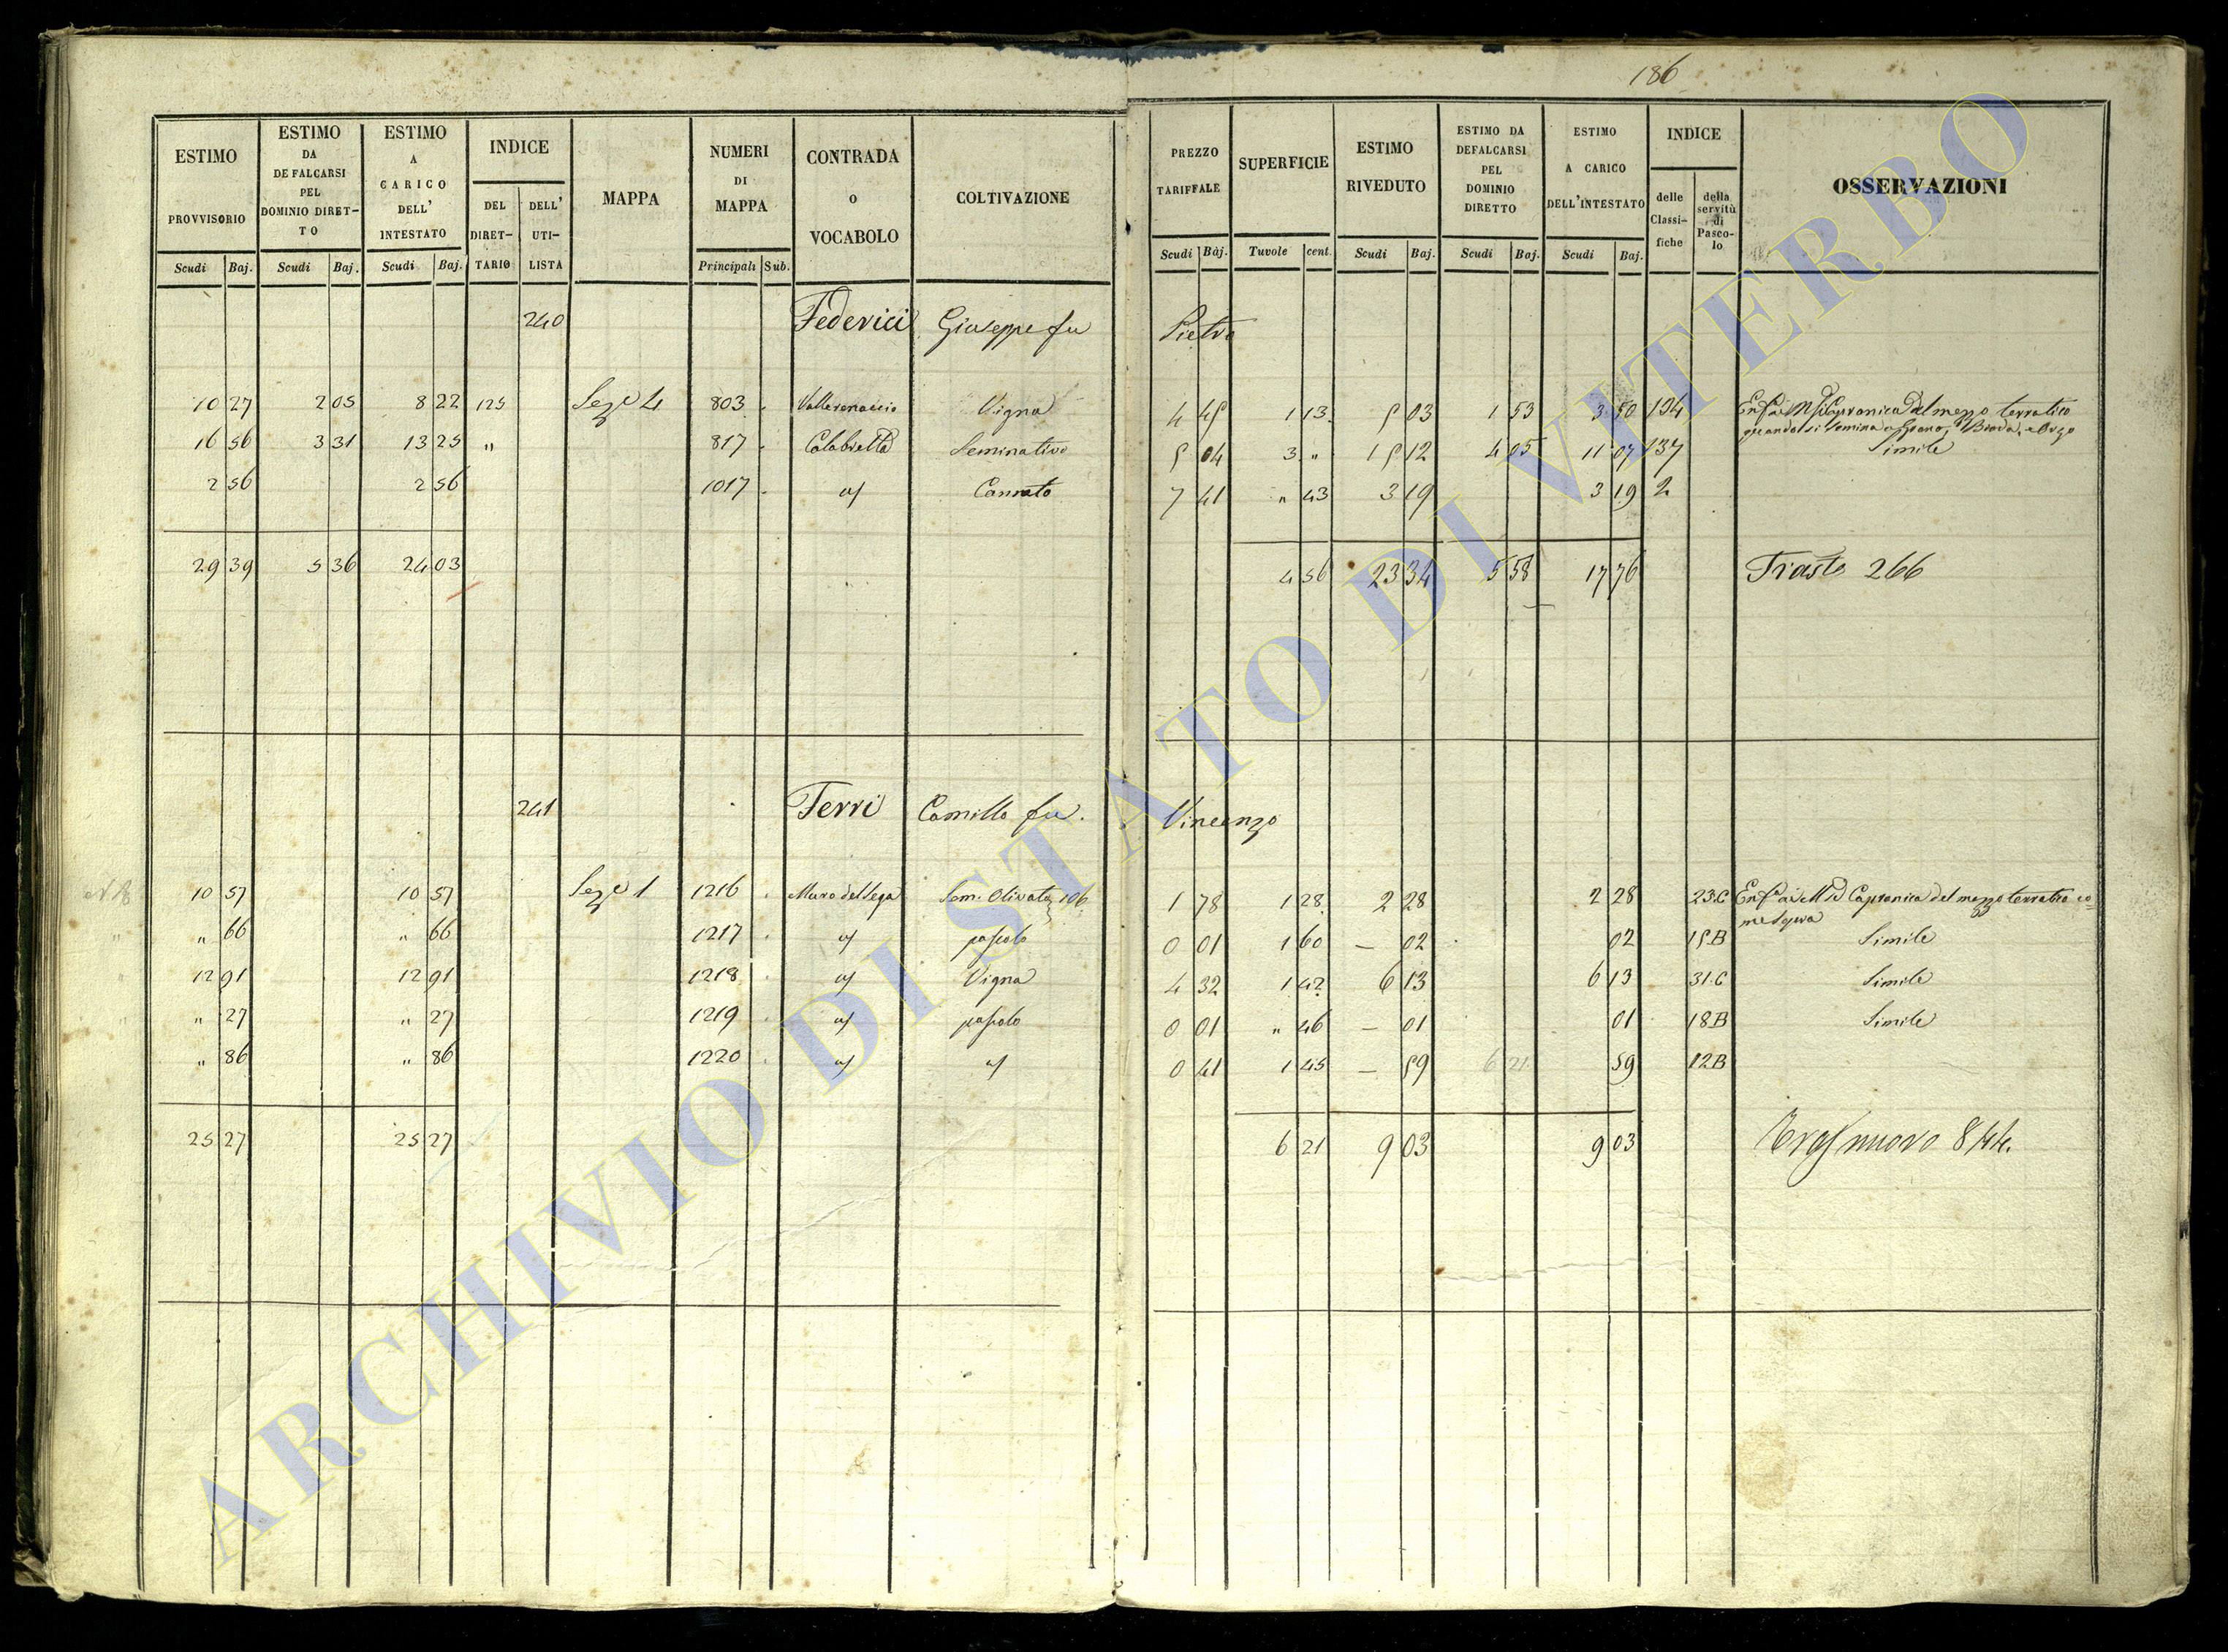 186
ESTIMO PROVVISORIO Scudi Baj.
ESTIMO DA DEFALCARSI PEL DOMINIO DIRETTO Scudi Baj.
ESTIMO A CARICO DELL' INTESTATO Scudi Baj.
INDICE DEL DIRETTARIO DELL' UTILISTA
MAPPA
NUMERI DI MAPPA Principali Sub.
CONTRADA O VOCABOLO
COLTIVAZIONE
PREZZO TARIFFALE Scudi Baj.
SUPERFICIE Tavole cent.
ESTIMO RIVEDUTO Scudi Baj.
ESTIMO DA DEFALCARSI PEL DOMINIO DIRETTO Scudi Baj.
ESTIMO A CARICO DELL'INTESTATO Scudi Baj.
INDICE delle Classifiche della servitù di Pascolo
OSSERVAZIONI
240 Federici Giuseppe fu Pietro
10 27 2 05 8 22 125 Sez.e 4 803 Vigna 4 45 1 13 5 03 1 53 3 50 134 Capronica del mezzo terratico
quando si semina a Grano, Biada, e Orzo
16 56 3 31 13 25 " 817 Calabrella Seminativo 5 04 3 " 15 12 4 05 11 07 137 Simile
2 56 2 56 1017 Canneto 7 41 " 43 3 19 3 19 2
29 39 5 36 24 03 4 56 23 34 5 58 17 76 Trasto 266
241 Ferri Camillo fu Vincenzo
10 57 10 57 Sez.e 1 1216 Sem. Olivato 106 1 78 1 28 2 28 2 28 23.C Capronica del mezzo terratico co=
me sopra
" 66 " 66 1217 pascolo 0 01 1 60 — 02 02 15B Simile
12 91 12 91 1218 Vigna 4 32 1 42 6 13 6 13 31.C Simile
" 27 " 27 1219 pascolo 0 01 " 46 — 01 01 18B Simile
" 86 " 86 1220 0 41 1 45 — 59 6 21 59 12B
25 27 25 27 6 21 9 03 9 03 nuovo 844.
ARCHIVIO DI STATO DI VITERBO